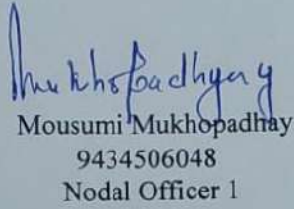 Mukhopadhyay
Mousumi Mukhopadhay
9434506048
Nodal Officer 1